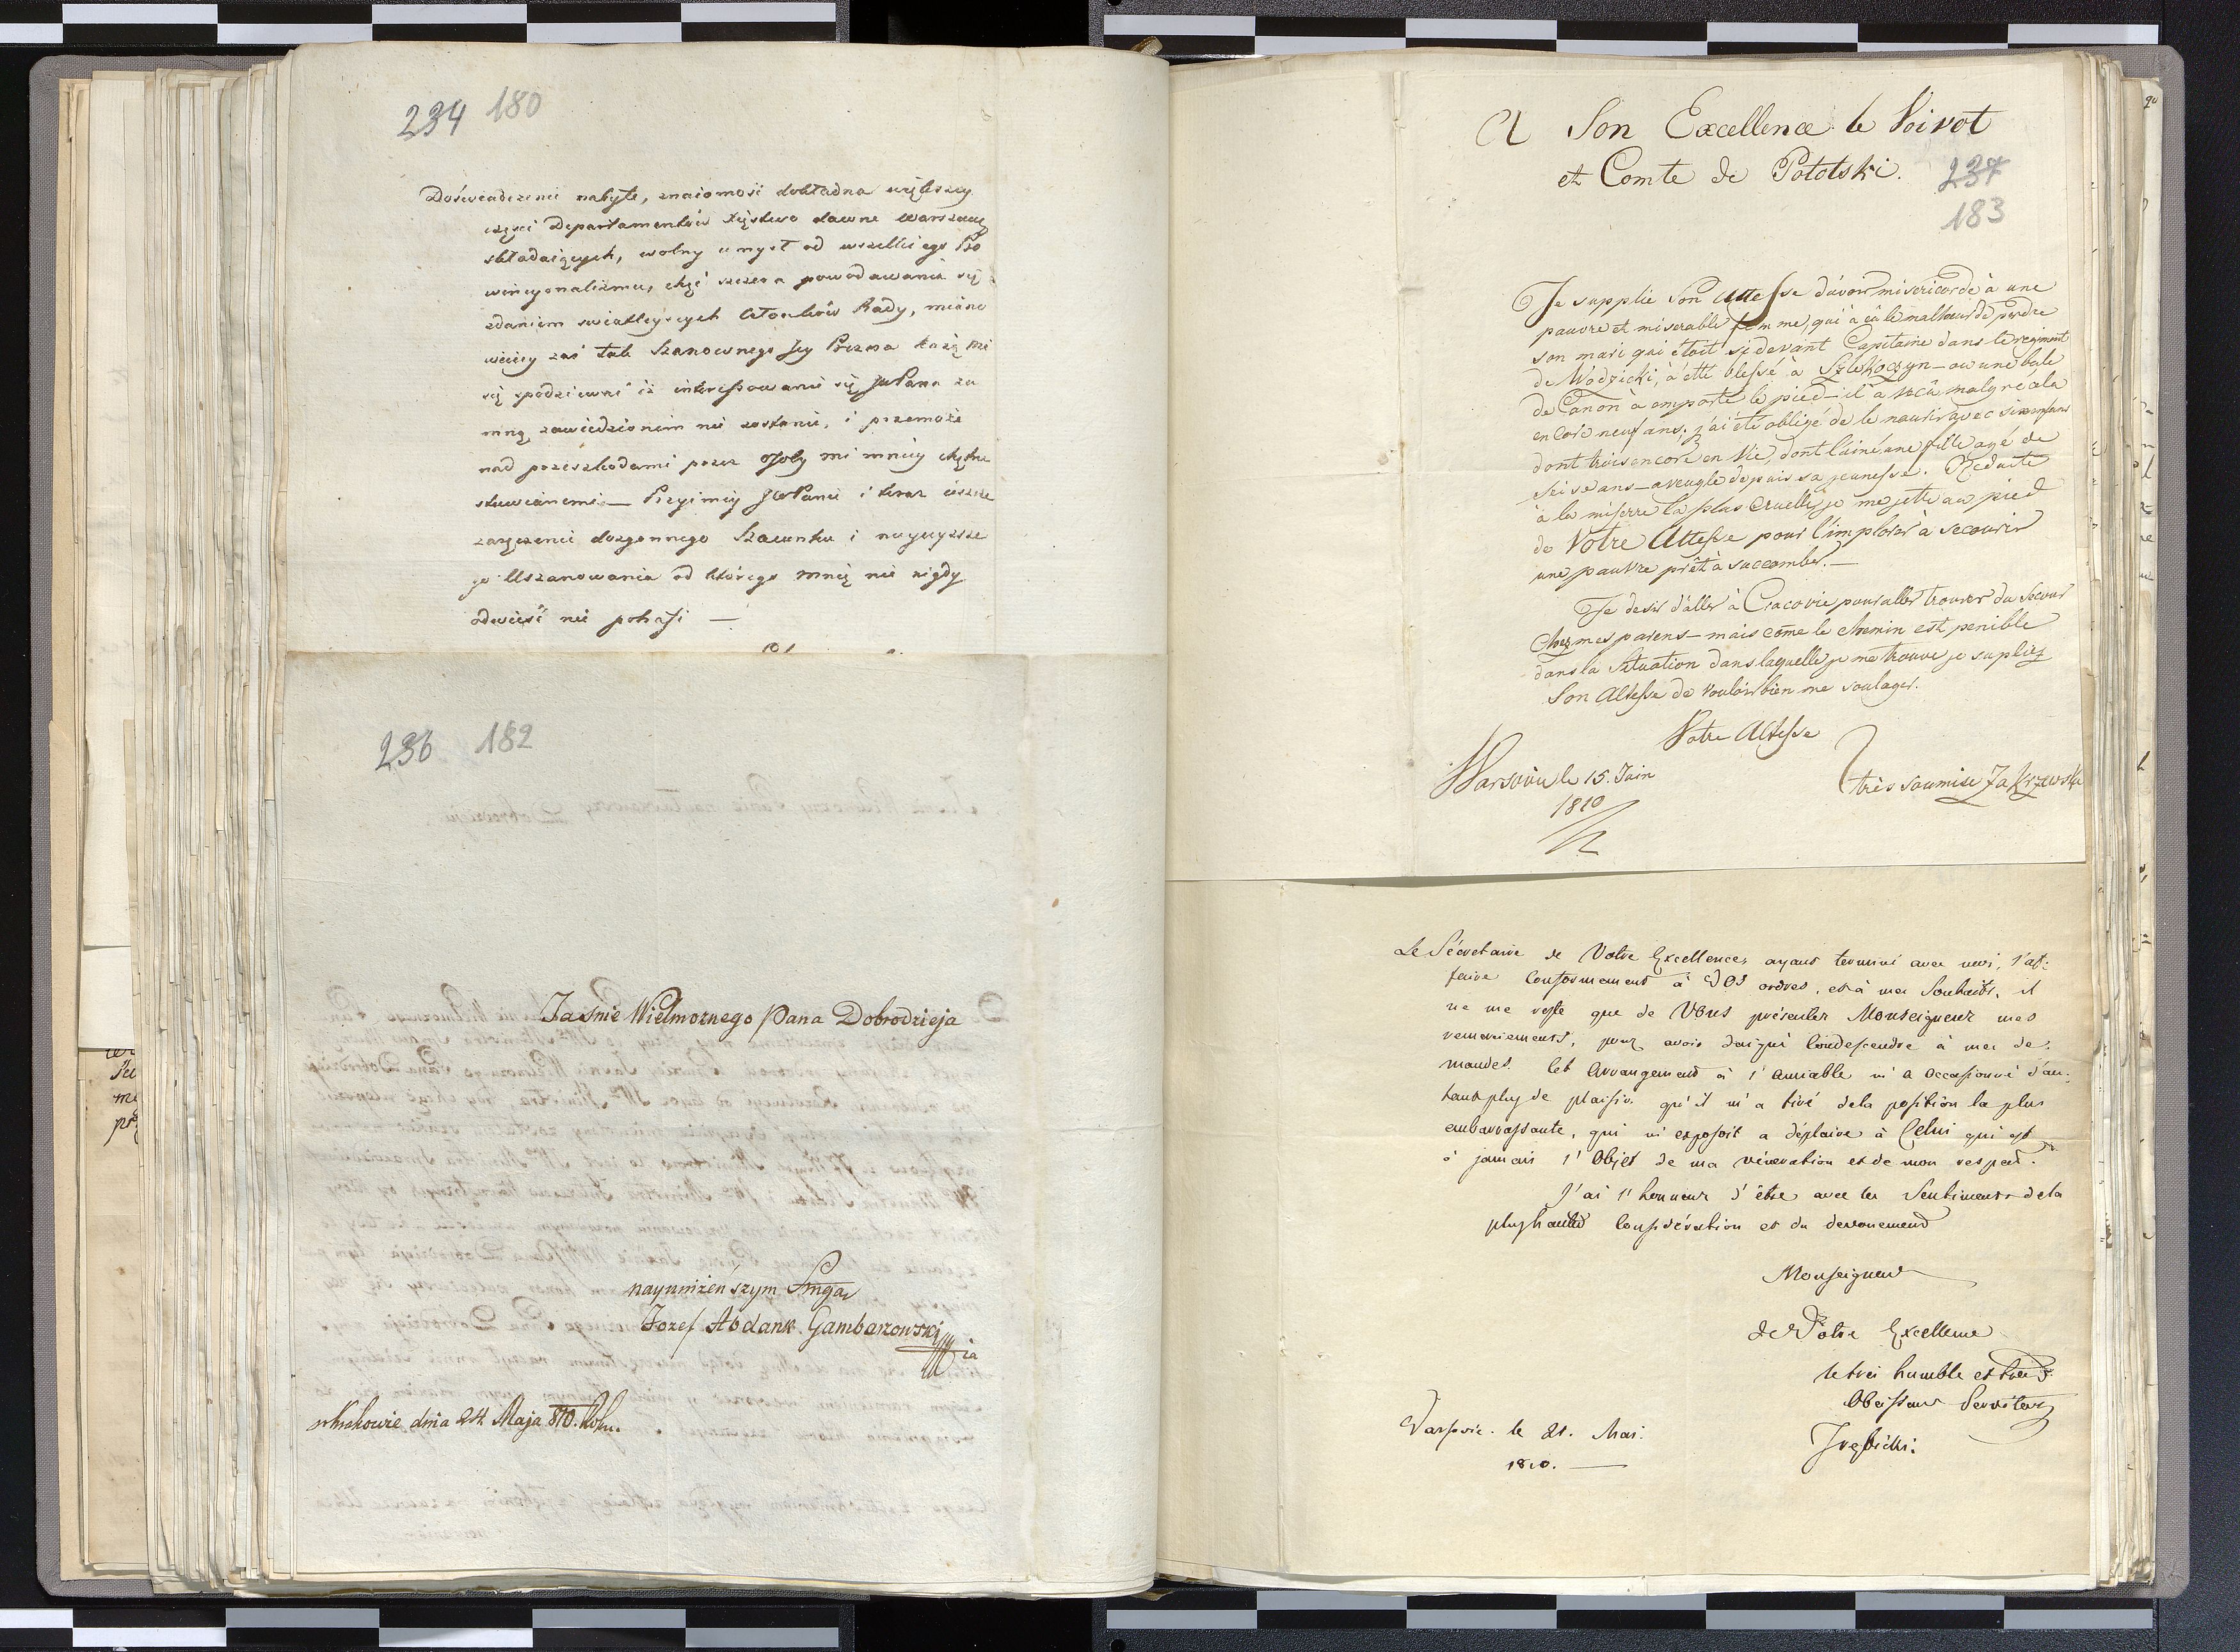 234 180
Doświadczenie nabyte, znaiomość dokładna większey
części Departamentów Xięstwo dawne Warszawy
składaiących, wolny umysł od wszelkiego Pro
wincyonalizmu, chęć szczera powodowania się
zdaniem światleyszych Członków Rady, mieнo
więcey zaś tak Szanownego Jey Prezesa każą mi
się spodziewać iż interessowanie się JWPana za
mną zawiedzionem nie zostanie, i przemoże
nad przeszkodami przez Osoby mi mniey chętne
stawianemi — Przyimiy JWPanie i teraz ieszcze
zaręczenie dozgonnego Szacunku i naywyższe
go Uszanowania od którego mnie nic nigdy
odwieść nie potrafi —
236 182
Jaśnie Wielmoznego Pana Dobrodzieja
nayunizeńszym Sługą
Jozef Abdank Gambarzowski
w Krakowie dnia 24 Maja 810. Roku.
A Son Excellence le Voivot
et Comte de Pototski.
237
183
Je supplie Son Altesse d'avoir misericorde à une
pauvre et miserable femme, qui à eû le malheur de perdre
son mari qui étoit cydevant Capitaine dans le regiment
de Wodzicki, à étté blessé à Szlekoczyn — ou une bale
de Canon à emporté le pied — il à vecû malgré cela
encore neuf ans. j'ai été obligé de le nourir avec six enfans
dont trois encore en Vie, dont l'ainé une fille agé de
seise ans — aveugle depuis sa jeunesse. Reduite
à la miserre la plus Cruelle, je me jette au pied
de Votre Altesse pour l'implorer à secourir
une pauvre prêt à succomber. —
Je desir d'aller à Cracovie pour aller trouver du Secour
Chez mes parens — mais come le chemin est penible
dans la Situation dans laquelle je me trouve je supliez
Son Altesse de vouloir bien me soulager.
Votre Altesse
très soumise Zakrzewska
Warsovie le 15. Juin
1810
Le Sécretaire de Votre Excellence, ayant terminé avec moi, l'af-
faire Conformement à Vos ordres, et à mes Souhaits, il
ne me reste que de Vous présenter Monseigneur mes
remerciements, pour avoir daigné Condescendre à mes de-
mandes. Cet Arrangement à l'amiable m'a occasionné d'au-
tant plus de plaisir qu'il m'a tiré de la position la plus
embarrassante, qui m'exposoit a déplaire à Celui qui est
à jamais l'Objet de ma vénération et de mon respect.
J'ai l'honneur d'être avec les Sentiments de la
plus haute Considération et du devouement
Monseigneur
de Votre Excellence
le très humble et très
Obeissant Serviteur
Varsovie. le 21. Mai.
1810. —